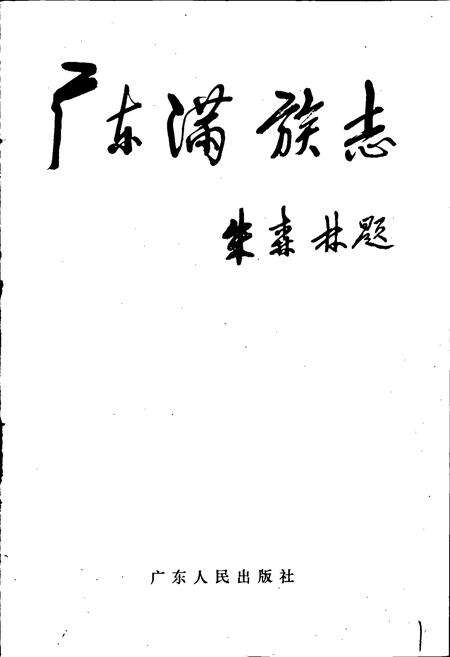 广东满族志
朱森林题
广东人民出版社
1